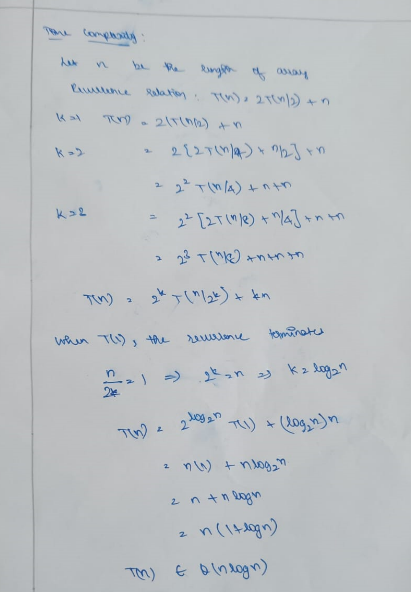 Time Complexity:
Let n be the length of array
Recurrence relation: T(n) = 2T(n/2) + n
k=1 T(n) = 2(T(n/2) + n
k=2 = 2[2T(n/4) + n/2] + n
= 2² T(n/4) + n+n
k=2 = 2² [2T(n/8) + n/4] + n + n
= 2³ T(n/8) + n+n+n
T(n) = 2ᵏ T(n/2ᵏ) + kn
when T(1), the recurrence terminates
n/2ᵏ = 1 ⇒ 2ᵏ = n ⇒ k = log₂n
T(n) = 2^log₂n T(1) + (log₂n)n
= n(1) + nlog₂n
= n + nlogn
= n(1+logn)
T(n) ∈ θ(nlogn)